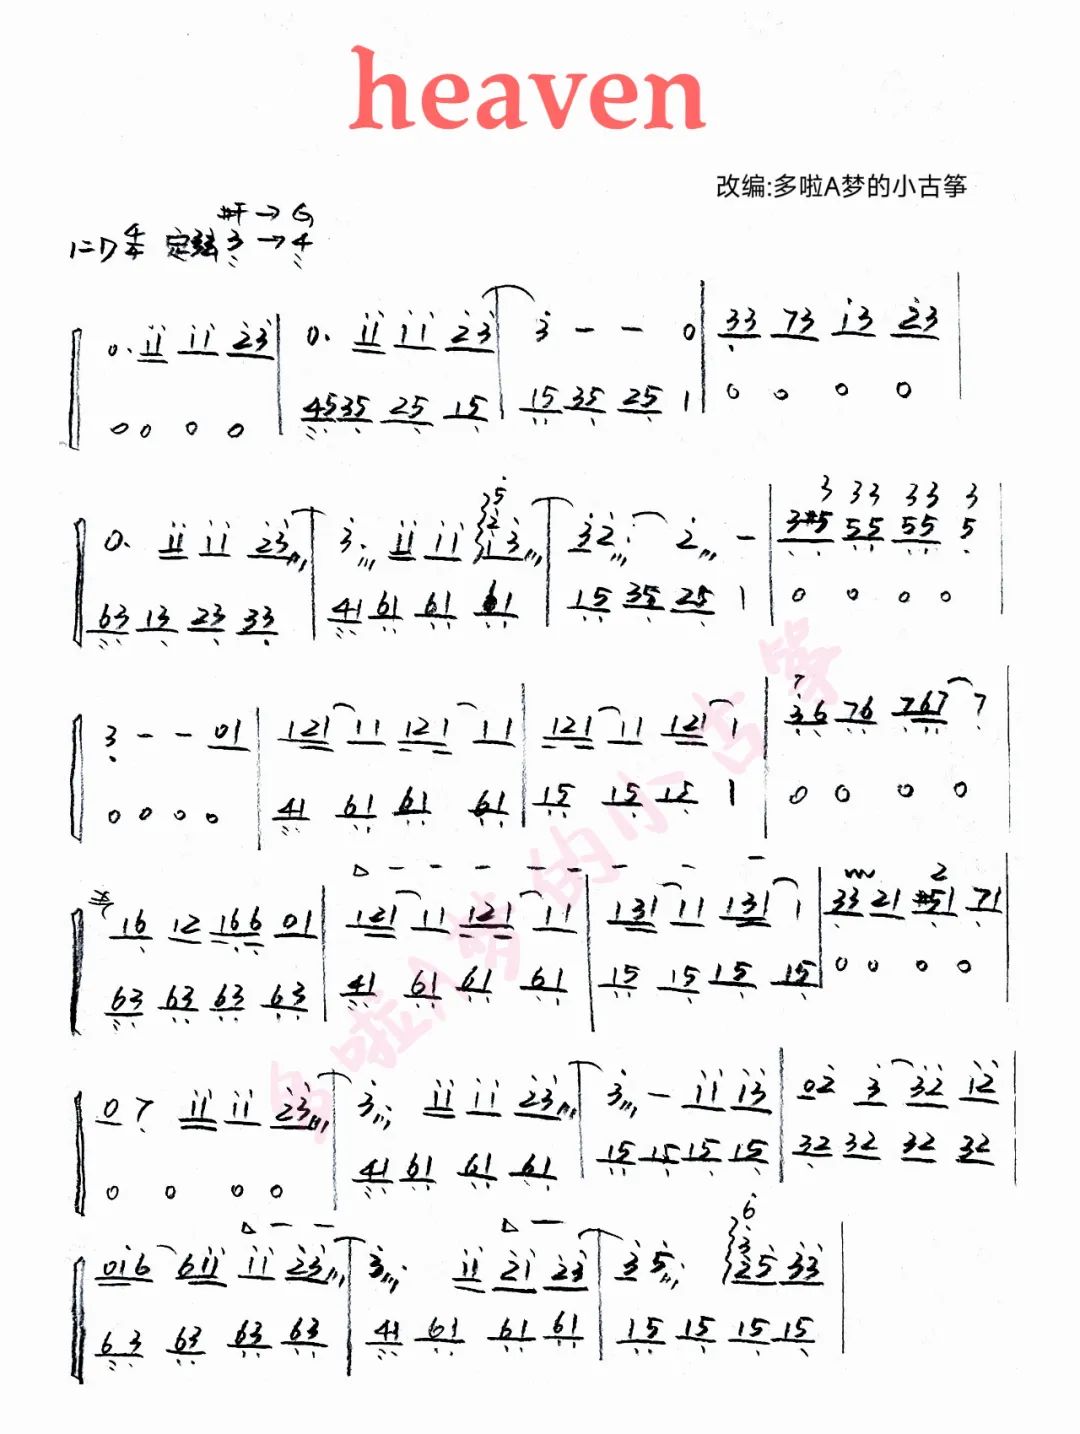 heaven
改编:多啦A梦的小古筝
#F → G
1=D 4/4 定弦 3 → 4
0. 11 11 23 | 0. 11 11 23 | 3 - - 0 | 33 73 13 23
0 0 0 0 | 4535 25 15 | 15 35 25 1 | 0 0 0 0
5
2
0. 11 11 23 | 3. 11 11 13 | 32. 2. - | 3#5 55 55 5
3 33 33 3
63 13 23 33 | 41 61 61 61 | 15 35 25 1 | 0 0 0 0
7
3 - - 01 | 121 11 121 11 | 121 11 121 1 | 36 76 767 7
0 0 0 0 | 41 61 61 61 | 15 15 15 1 | 0 0 0 0
△ - - - - - - - -
2
16 12 166 01 | 121 11 121 11 | 131 11 131 1 | 33 21 #51 71
63 63 63 63 | 41 61 61 61 | 15 15 15 15 | 0 0 0 0
07 11 11 23 | 3. 11 11 23 | 3. - 11 13 | 02 3 32 12
0 0 0 0 | 41 61 61 61 | 15 15 15 15 | 32 32 32 32
△ - - △ -
6
3
016 611 11 23 | 3. 11 21 23 | 35. 25 33
63 63 63 63 | 41 61 61 61 | 15 15 15 15
多啦A梦的小古筝